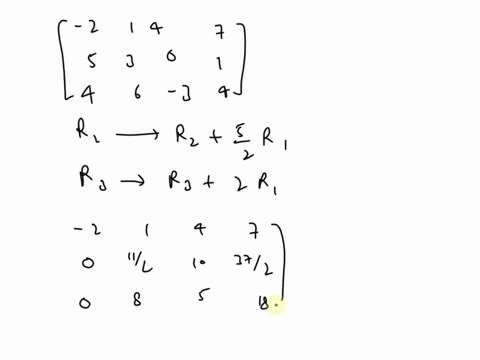 -2 1 4 7
5 3 0 1
4 6 -3 4
R₂ → R₂ + 5/2 R₁
R₃ → R₃ + 2 R₁
-2 1 4 7
0 11/2 10 37/2
0 8 5 18